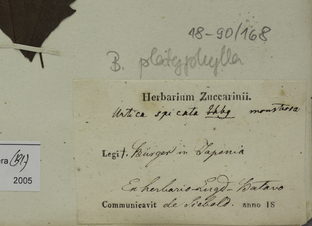 18-90/168
B. platyphylla
Herbarium Zuccarinii.
Urtica spicata Thbg monstrosa
Legit. Bürger in Japonia
Ex herbario Lugd-Batavo
Communicavit de Siebold. anno 18
2005